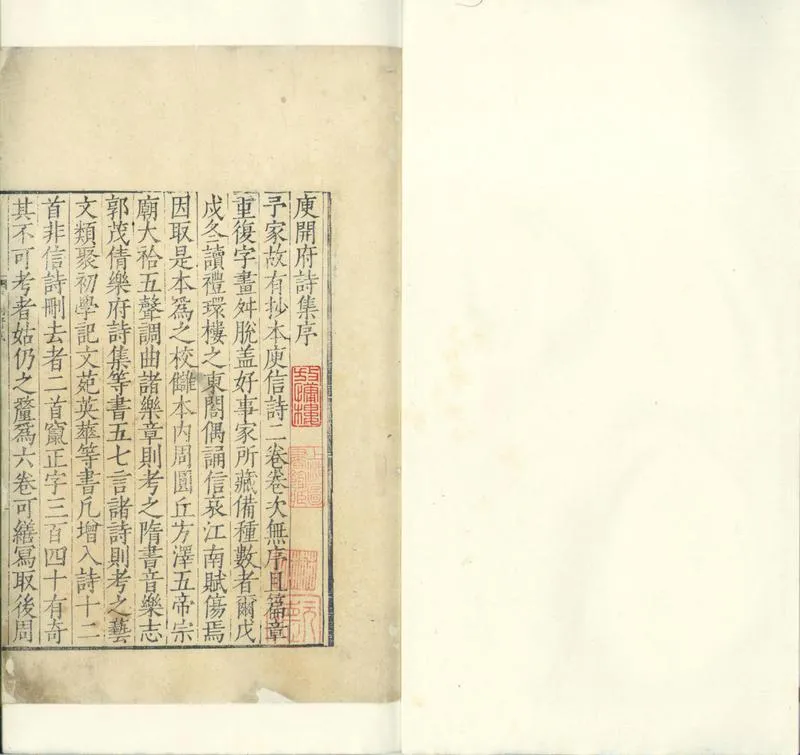 庾開府詩集序
予家故有抄本庾信詩二卷卷次無序且篇章
重復字畫舛脫盖好事家所藏備種數者爾戊
戌冬讀禮環樓之東閣偶誦信哀江南賦傷焉
因取是本爲之校讎本內周圓丘方澤五帝宗
廟大祫五聲調曲諸樂章則考之隋書音樂志
郭茂倩樂府詩集等書五七言諸詩則考之藝
文類聚初學記文苑英華等書凡增入詩十二
首非信詩刪去者二首竄正字三百四十有奇
其不可考者姑仍之釐爲六卷可繕寫取後周